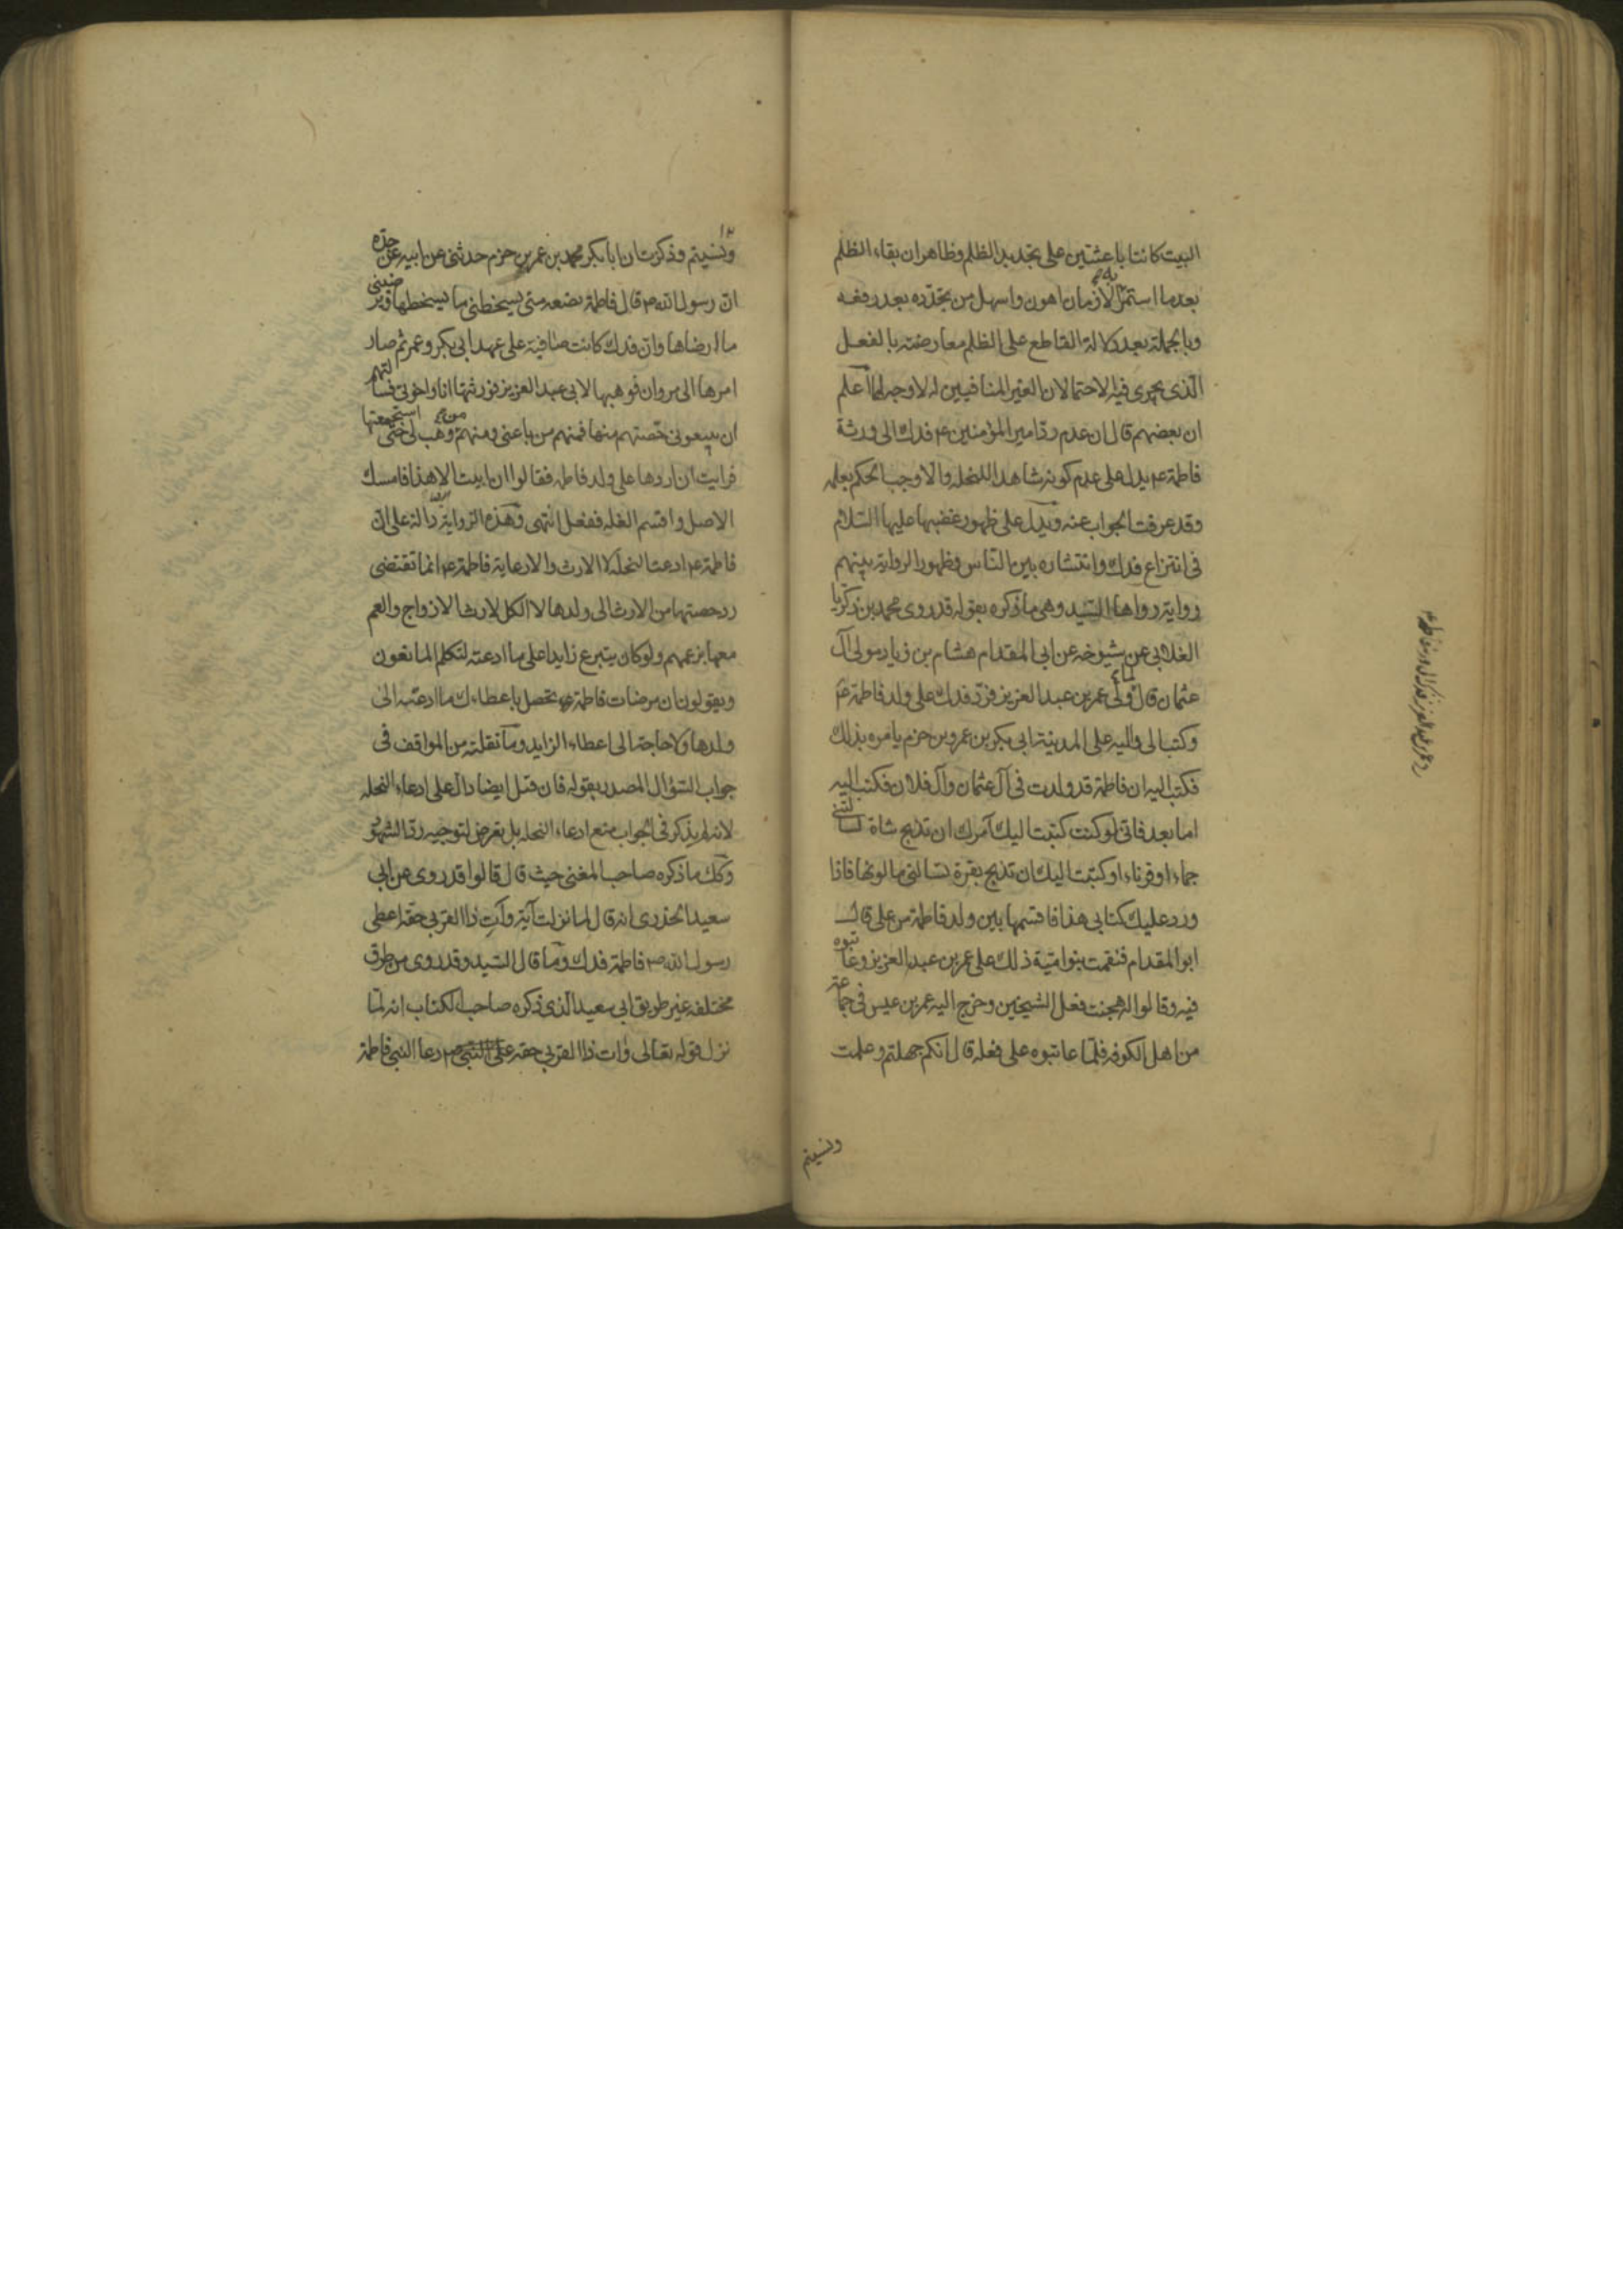 البيت كانتا باعثتين على تجديد الظلم وظاهر ان بقاء الظلم
بعد ما استمرّ به الازمان اهون واسهل من تجدّده بعد رفعه
وبالجملة بعد دلالة القاطع على الظلم معارضته بالفعل
الّذى يجرى فيه الاحتمالان الغير المنافيين له لا وجه لها اعلم
ان بعضهم قال ان عدم ردّ امير المؤمنين ع فدك الى ورثة
فاطمة ع يدل على عدم كونه شاهدا للنحله والا وجب الحكم بعلمه
وقد عرفت الجواب عنه ويدل على ظهور غضبها عليها السّلام
فى انتزاع فدك وانتشاره بين النّاس وظهور الرواية بينهم
رواية رواها السّيد وهى ما ذكره بقوله قد روى محمد بن زكريا
الغلابى عن شيوخه عن ابى المقدام هشام بن زياد مولى آل
عثمان قال لما ولّى عمر بن عبد العزيز فردّ فدك على ولد فاطمة ع
وكتب الى واليه على المدينة ابى بكر بن عمرو بن حزم يامره بذلك
فكتب اليه ان فاطمة قد ولدت فى آل عثمان وآل فلان فكتب اليه
اما بعد فانّى لو كنت كتبت اليك آمرك ان تذبح شاة لسالتنى
جماء او قرناء او كتبت اليك ان تذبح بقرة لسالتنى ما لونها فاذا
ورد عليك كتابى هذا فاقسمها بين ولد فاطمة من على قال
ابو المقدام فنقمت بنو اميّة ذلك على عمر بن عبد العزيز وعاتبوه
فيه وقالوا له هجنت فعل الشيخين وخرج اليه عمر بن عيس فى جماعة
من اهل الكوفه فلمّا عاتبوه على فعله قال انكم جهلتم وعلمت
ونسيتم
ونسيتم وذكرت ان ابا بكر محمد بن عمر بن حزم حدثنى عن ابيه عن جدّه
انّ رسول الله ص قال فاطمة بضعه منى يسخطنى ما يسخطها ويرضينى
ما ارضاها وانّ فدك كانت صافية على عهد ابى بكر وعمر ثم صار
امرها الى مروان فوهبها لابى عبد العزيز فورثتها انا واخوتى فسالتهم
ان يبيعونى حصّتهم منها فمنهم من باعنى ومنهم من وهب لى حتى استجمعتها
فرايت ان اردها على ولد فاطمه فقالوا ان ابيت الا هذا فامسك
الاصل واقسم الغله ففعل انتهى وهذه الرواية دالة على انّ
فاطمة ع ادعت النحلة لا الارث والا رعاية فاطمة ع انما تقتضى
رد حصتها من الارث الى ولدها لا الكل لارث الازواج والعم
معها بزعمهم ولو كان يتبرع زايدا على ما ادعته لتكلم المانعون
ويقولون ان مرضات فاطمة ع تحصل باعطاءك ما ادعته الى
ولدها ولا حاجة الى اعطاء الزايد وما نقلته من المواقف فى
جواب السّؤال المصدر بقوله فان قيل ايضا دال على ادعاء النحله
لانه لم يذكر فى الجواب منع ادعاء النحله بل تعرض لتوجيه ردّ الشهود
وكك ما ذكره صاحب المغنى حيث قال قالوا قد روى عن ابى
سعيد الخدرى انه قال لما نزلت آية وآتِ ذا القربى حقّه اعطى
رسول الله ص فاطمة فدك وما قال السّيد وقد روى من طرق
مختلفه غير طريق ابى سعيد الّذى ذكره صاحب الكتاب انه لمّا
نزل قوله تعالى وات ذا القربى حقه دعا النبى فاطمة